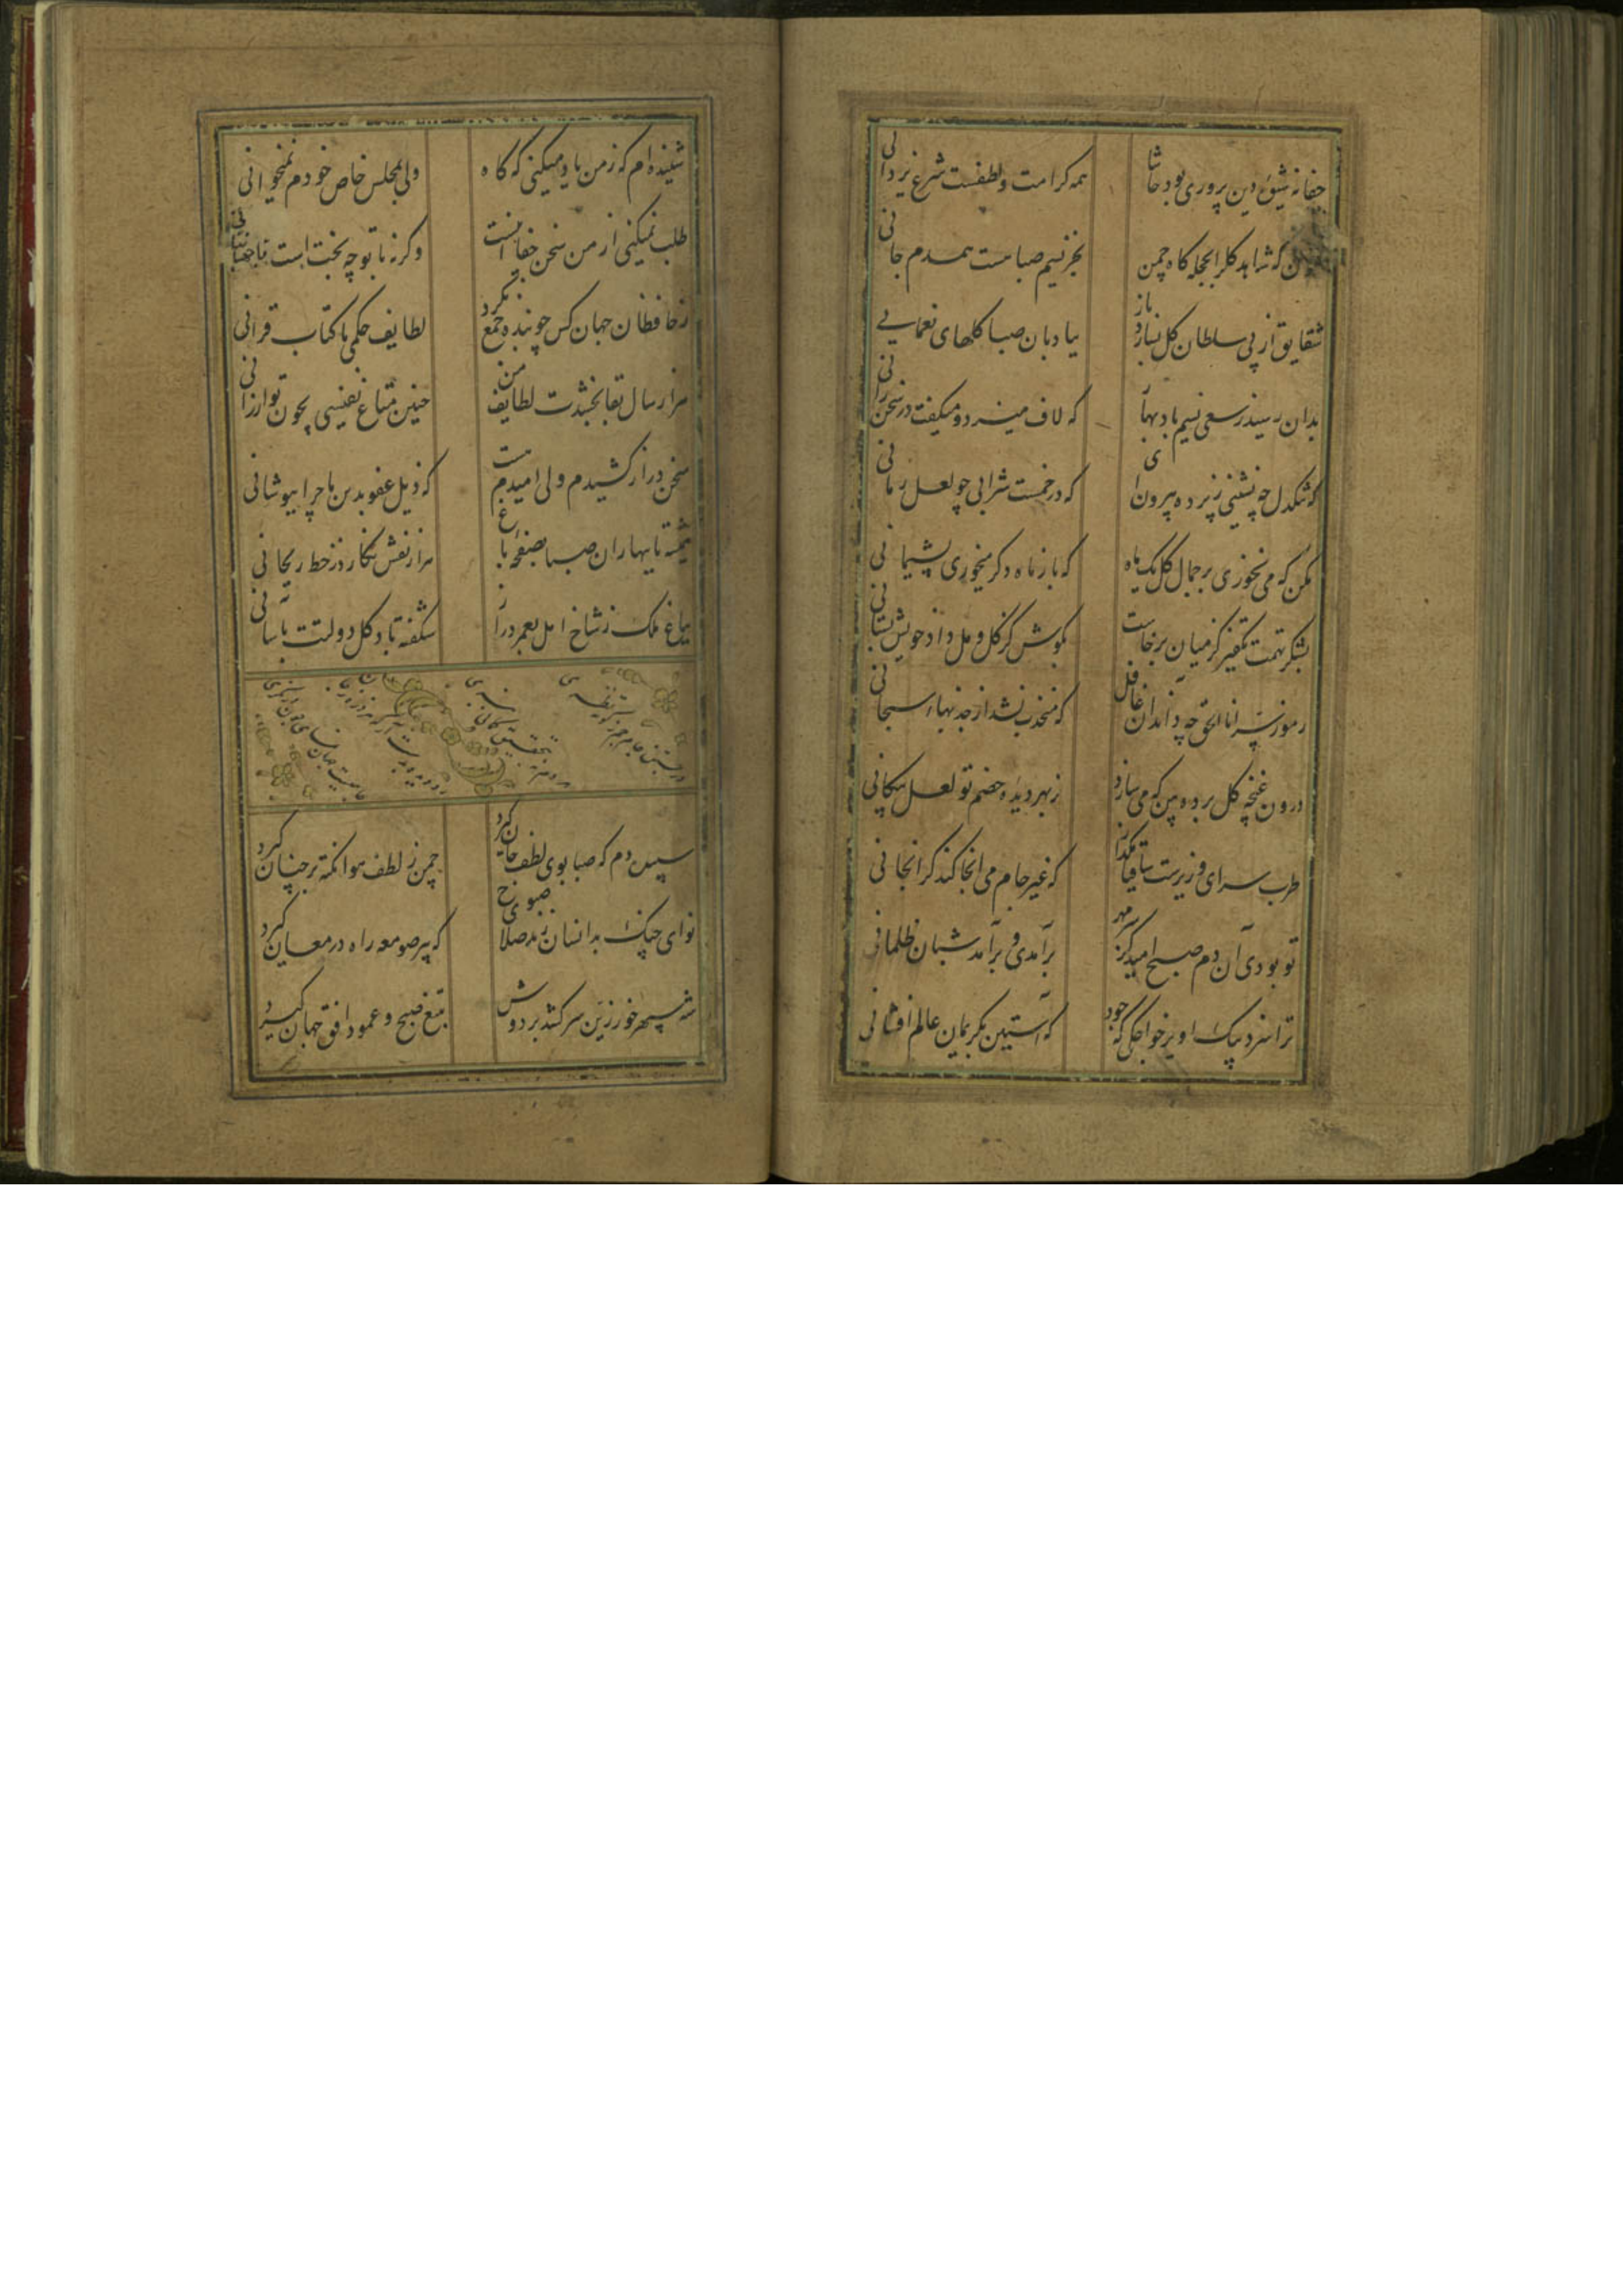 جفا نه شیوه دین پروری بود حاشا همه کرامت و لطفست شرع یزدانی
که شاهد کل را بحجله کاه چمن بجز نسیم صبا نیست همدم جانی
شقایق از پی سلطان کل بسازد باز ببادبان صبا کلهای نعمانی
بدان رسید ز سعی نسیم باد بهار که لاف میزند و میکفت در سخن رانی
که تنکدل چه نشینی ز پرده بیرون آی که در خمست شرابی چو لعل رمانی
مکن که می نخوری بر جمال کل یک ماه که باز ماه دکر میخوری پشیمانی
بشکر تهمت تکفیر کز میان برخاست بکوش کز کل و مل داد خویش بستانی
رموز سر انا الحق چه داند آن غافل که منجذب نشد از جذبهاء سبحانی
درون غنچه کل پرده بین که می سازد ز بهر دیده خصم تو لعل پیکانی
طرب سرای وزیرست ساقیا مکذار که غیر جام می آنجا کند کرانجانی
تو بودی آن دم صبح امید کز سر مهر برآمدی و برآمد شبان ظلمانی
ترا سزد خواجکی که جود که آستین بکریمان عالم افشانی
شنیده ام که ز من یاد میکنی که کاه ولی بمجلس خاص خودم نمیخوانی
طلب نمیکنی از من سخن جفا اینست وکرنه با تو چه بحث است
ز حافظان جهان کس چو بنده جمع نکرد لطایف حکمی با کتاب قرآنی
هزار سال بقا بخشدت لطایف من چنین متاع نفیسی بچون تو ارزانی
سخن دراز کشیدم ولی امیدم هست که ذیل عفو بدین ماجرا بپوشانی
همیشه تا بهاران صبا بصفحه باغ هزار نقش نکارد ز خط ریحانی
بباغ ملک ز شاخ امل بعمر دراز شکفته باد کل دولتت بآسانی
سپیده دم که صبا بوی لطف جان کیرد چمن ز لطف هوا نکته بر جنان کیرد
نوای چنک بدانسان زند صلای صبوح که پیر صومعه راه در مغان کیرد
شه سپهر خور زرین سر کشد بر دوش بتیغ صبح و عمود افق جهان کیرد